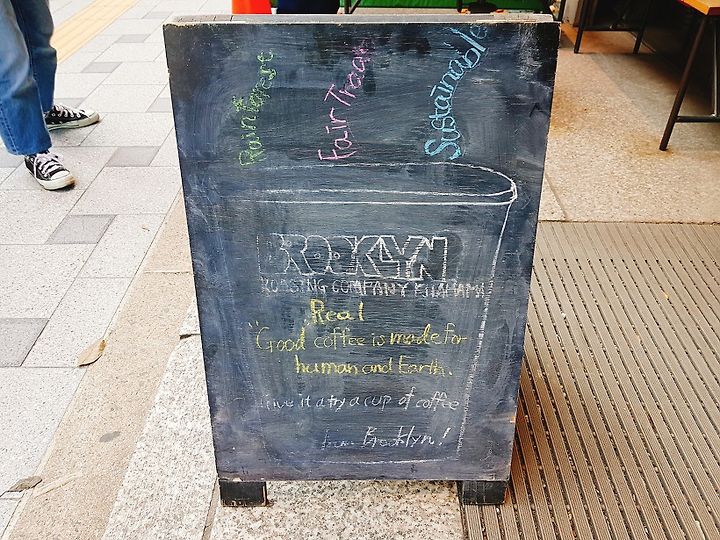 Rainforest
Fair Trade
Sustainable
BROOKLYN
ROASTING COMPANY KITAHAMA
Real
"Good coffee is made for
human and Earth.
Give it a try a cup of coffee
from Brooklyn!